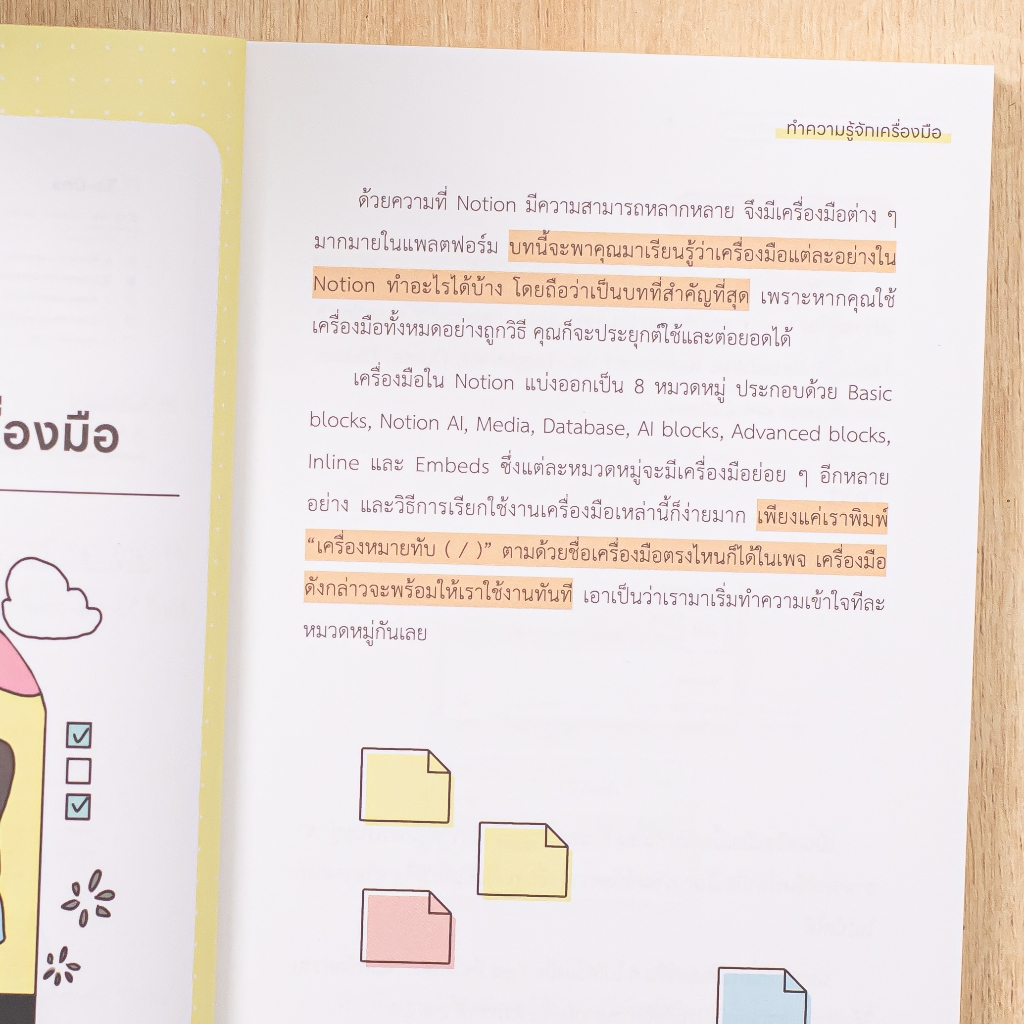 ทำความรู้จักเครื่องมือ
ด้วยความที่ Notion มีความสามารถหลากหลาย จึงมีเครื่องมือต่าง ๆ
มากมายในแพลตฟอร์ม บทนี้จะพาคุณมาเรียนรู้ว่าเครื่องมือแต่ละอย่างใน
Notion ทำอะไรได้บ้าง โดยถือว่าเป็นบทที่สำคัญที่สุด เพราะหากคุณใช้
เครื่องมือทั้งหมดอย่างถูกวิธี คุณก็จะประยุกต์ใช้และต่อยอดได้
เครื่องมือใน Notion แบ่งออกเป็น 8 หมวดหมู่ ประกอบด้วย Basic
blocks, Notion AI, Media, Database, AI blocks, Advanced blocks,
Inline และ Embeds ซึ่งแต่ละหมวดหมู่จะมีเครื่องมือย่อย ๆ อีกหลาย
อย่าง และวิธีการเรียกใช้งานเครื่องมือเหล่านี้ก็ง่ายมาก เพียงแค่เราพิมพ์
“เครื่องหมายทับ ( / )” ตามด้วยชื่อเครื่องมือตรงไหนก็ได้ในเพจ เครื่องมือ
ดังกล่าวจะพร้อมให้เราใช้งานทันที เอาเป็นว่าเรามาเริ่มทำความเข้าใจทีละ
หมวดหมู่กันเลย